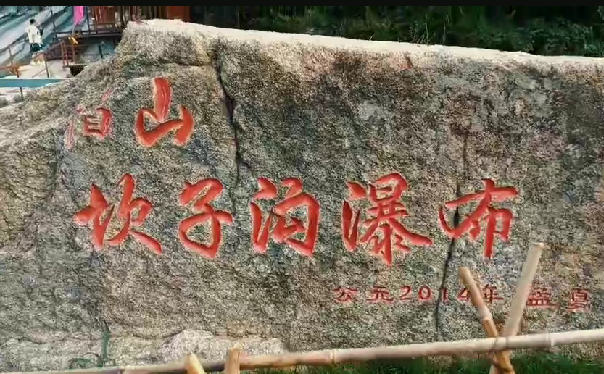 山
坎子涧瀑布
公元2014年 孟夏